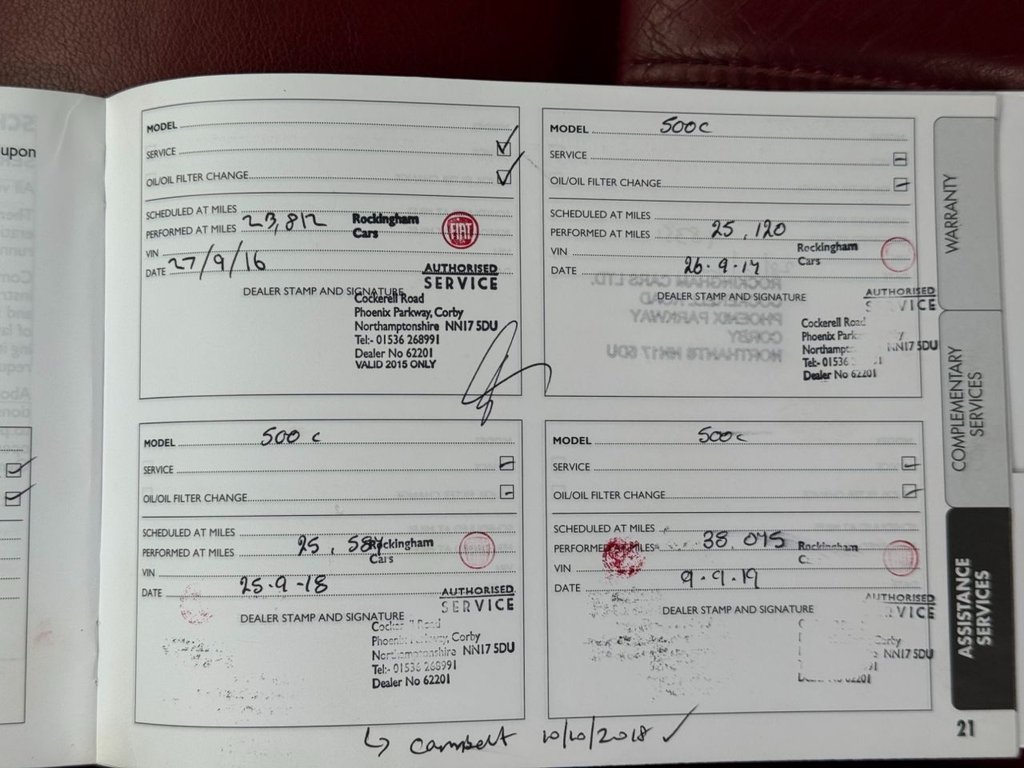 upon
MODEL
SERVICE
OIL/OIL FILTER CHANGE
SCHEDULED AT MILES
PERFORMED AT MILES 23,812
VIN
DATE 27/9/16
Rockingham
Cars
FIAT
AUTHORISED
SERVICE
DEALER STAMP AND SIGNATURE
Cockerell Road
Phoenix Parkway, Corby
Northamptonshire NN17 5DU
Tel:- 01536 268991
Dealer No 62201
VALID 2015 ONLY
MODEL 500c
SERVICE
OIL/OIL FILTER CHANGE
SCHEDULED AT MILES
PERFORMED AT MILES 25,120
VIN
DATE 26.9.17
Rockingham
Cars
AUTHORISED
DEALER STAMP AND SIGNATURE
Cockerell Road
Phoenix
NN17 5DU
Tel:- 01536
Dealer No 62201
MODEL 500 c
SERVICE
OIL/OIL FILTER CHANGE
SCHEDULED AT MILES
PERFORMED AT MILES 25,
VIN
DATE 25.9-18
Rockingham
Cars
AUTHORISED
SERVICE
DEALER STAMP AND SIGNATURE
Corby
NN17 5DU
Tel:- 01536 268991
Dealer No 62201
MODEL 500c
SERVICE
OIL/OIL FILTER CHANGE
SCHEDULED AT MILES
PERFORMED AT MILES 38.045
VIN
DATE 9.9.19
Rockingham
AUTHORISED
DEALER STAMP AND SIGNATURE
Corby
NN17 5DU
↳ cambelt 10/10/2018 ✓
WARRANTY
COMPLEMENTARY
SERVICES
ASSISTANCE
SERVICES
21